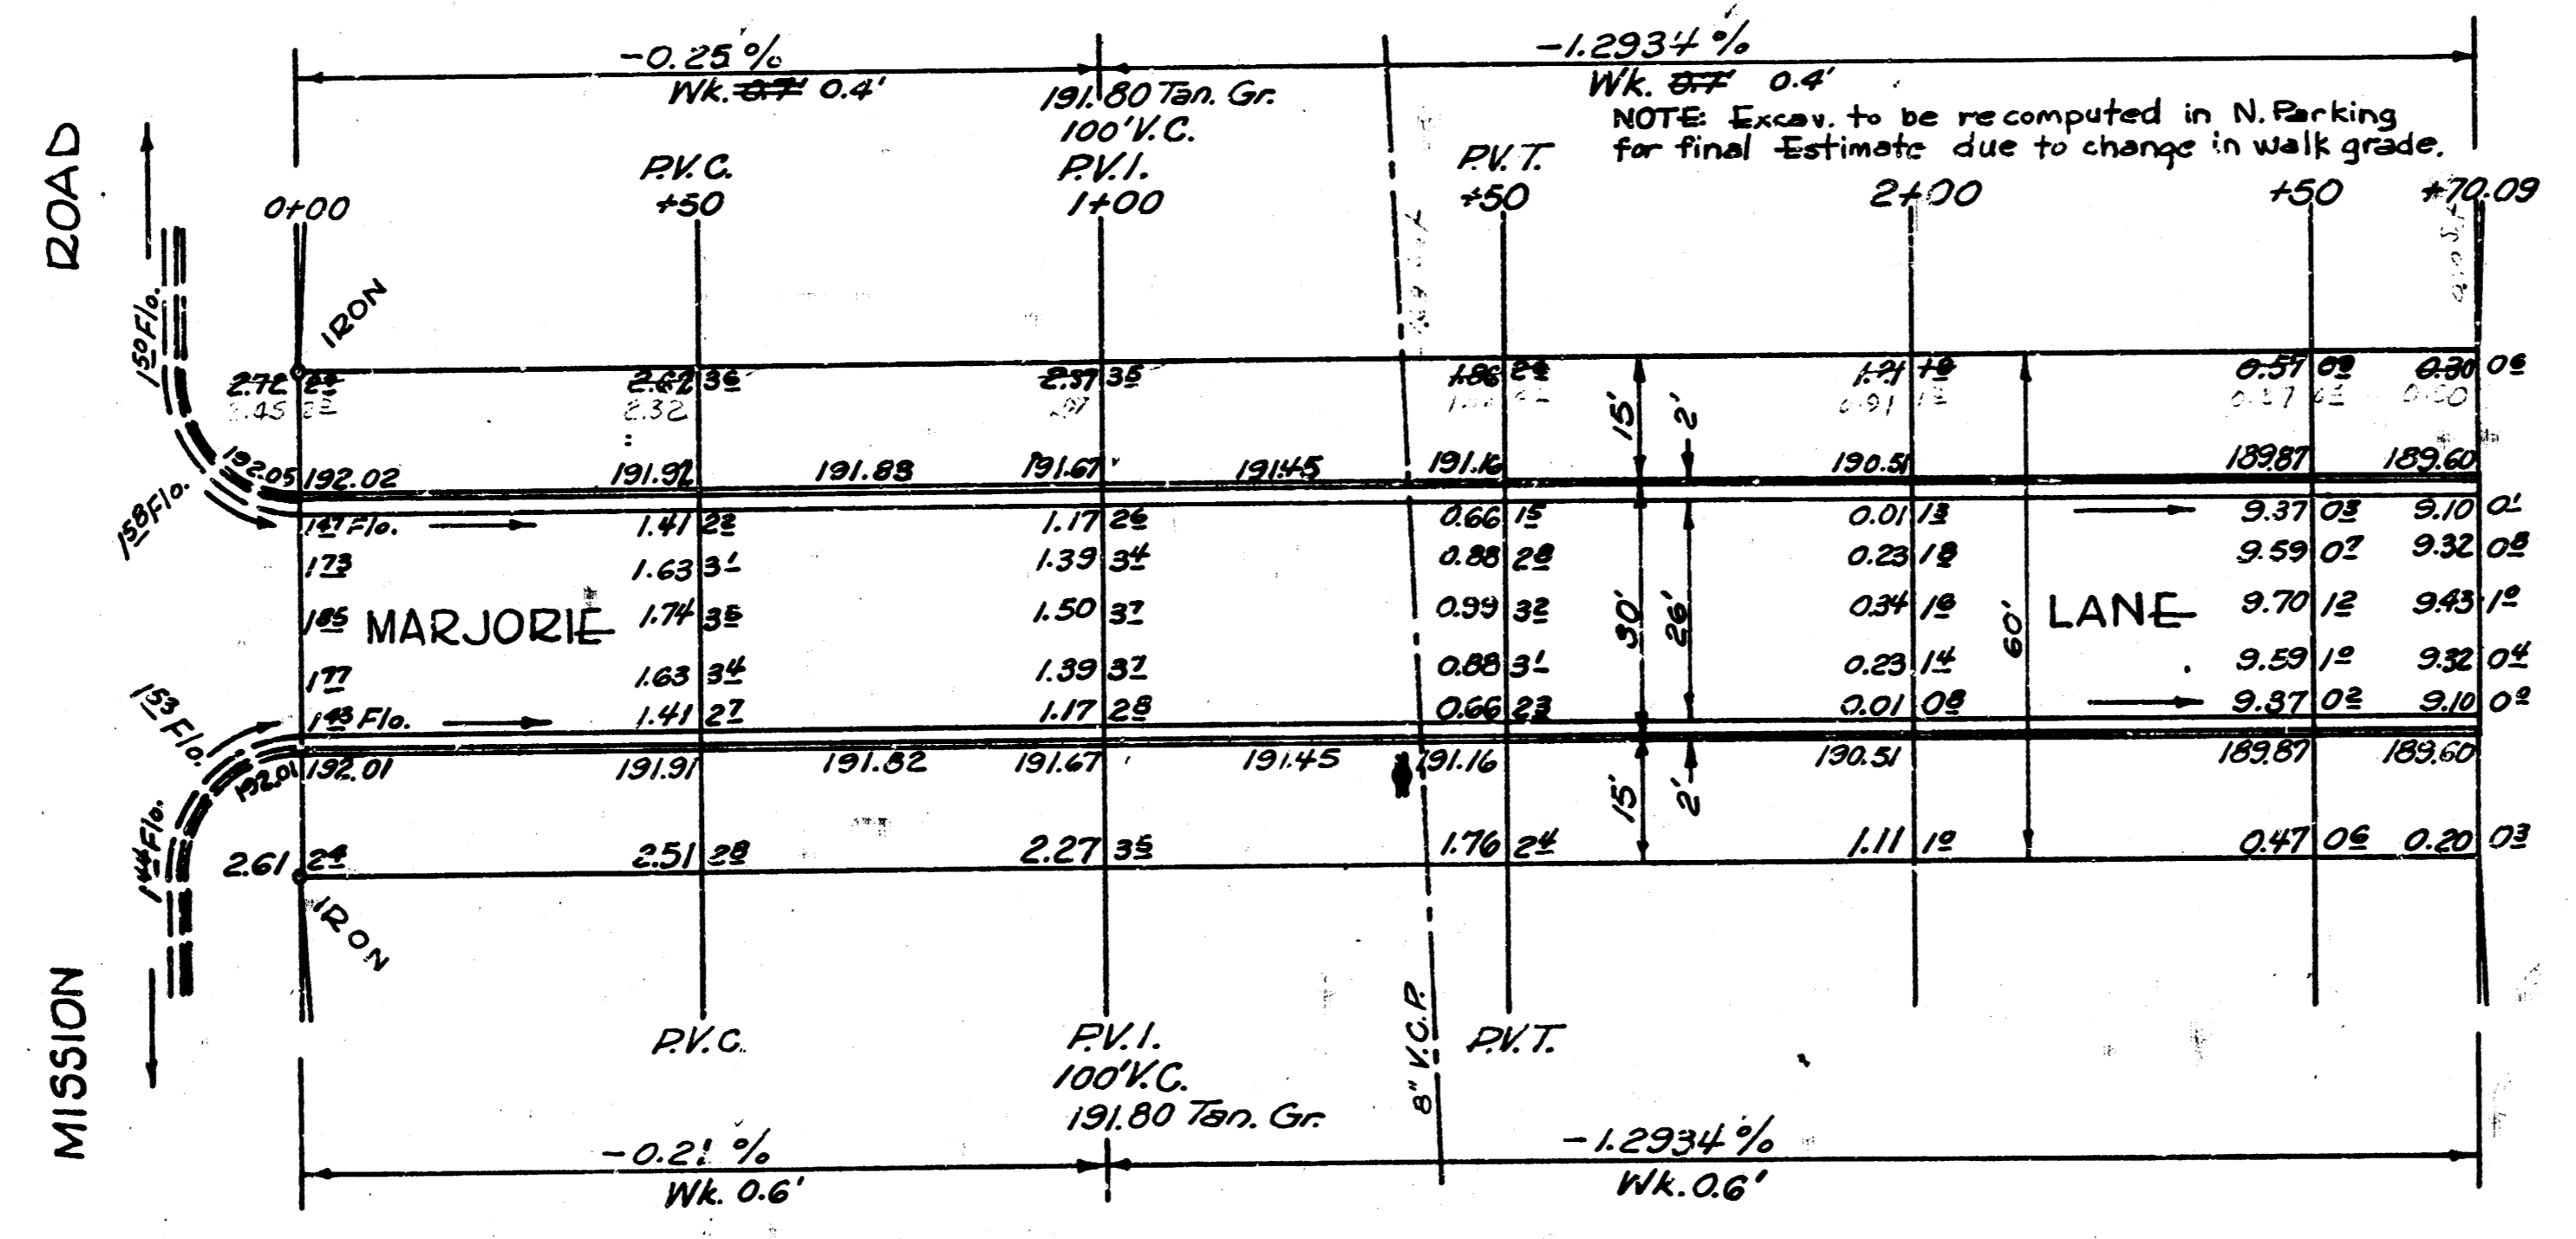 -0.25 %
-1.2934 %
Wk. 0.7' 0.4'
191.80 Tan. Gr.
Wk. 0.7' 0.4'
100' V.C.
NOTE: Excav. to be recomputed in N. Parking
for final Estimate due to change in walk grade.
P.V.C.
P.V.I.
P.V.T.
0+00
+50
1+00
+50
2+00
+50
+70.09
ROAD
IRON
1 50 Flo.
2.72
2.62 36
2.37 35
1.86
1.21
0.57
0.30 06
2.45
2.32
0.91
15'
2'
192.05
192.02
191.92
191.83
191.67
191.45
191.16
190.51
189.87
189.60
1 58 Flo.
1 47 Flo.
1.41
1.17 26
0.66 15
0.01 13
9.37 03
9.10 01
1 73
1.63 31
1.39 34
0.88 28
0.23 18
9.59 07
9.32 08
1 85
MARJORIE
1.74 35
1.50 37
0.99 32
30'
26'
0.34 16
60'
LANE
9.70 12
9.43 10
1 77
1.63 34
1.39 37
0.88 31
0.23 14
9.59 10
9.32 04
1 53 Flo.
1 43 Flo.
1.41 27
1.17 28
0.66 23
0.01 08
9.37 02
9.10 00
192.01
192.01
191.91
191.82
191.67
191.45
191.16
190.51
189.87
189.60
15'
2'
1 44 Flo.
2.61 24
2.51 28
2.27 35
1.76 24
1.11 10
0.47 06
0.20 03
IRON
MISSION
8" V.C.P.
P.V.C.
P.V.I.
P.V.T.
100' V.C.
191.80 Tan. Gr.
-0.21 %
-1.2934 %
Wk. 0.6'
Wk. 0.6'